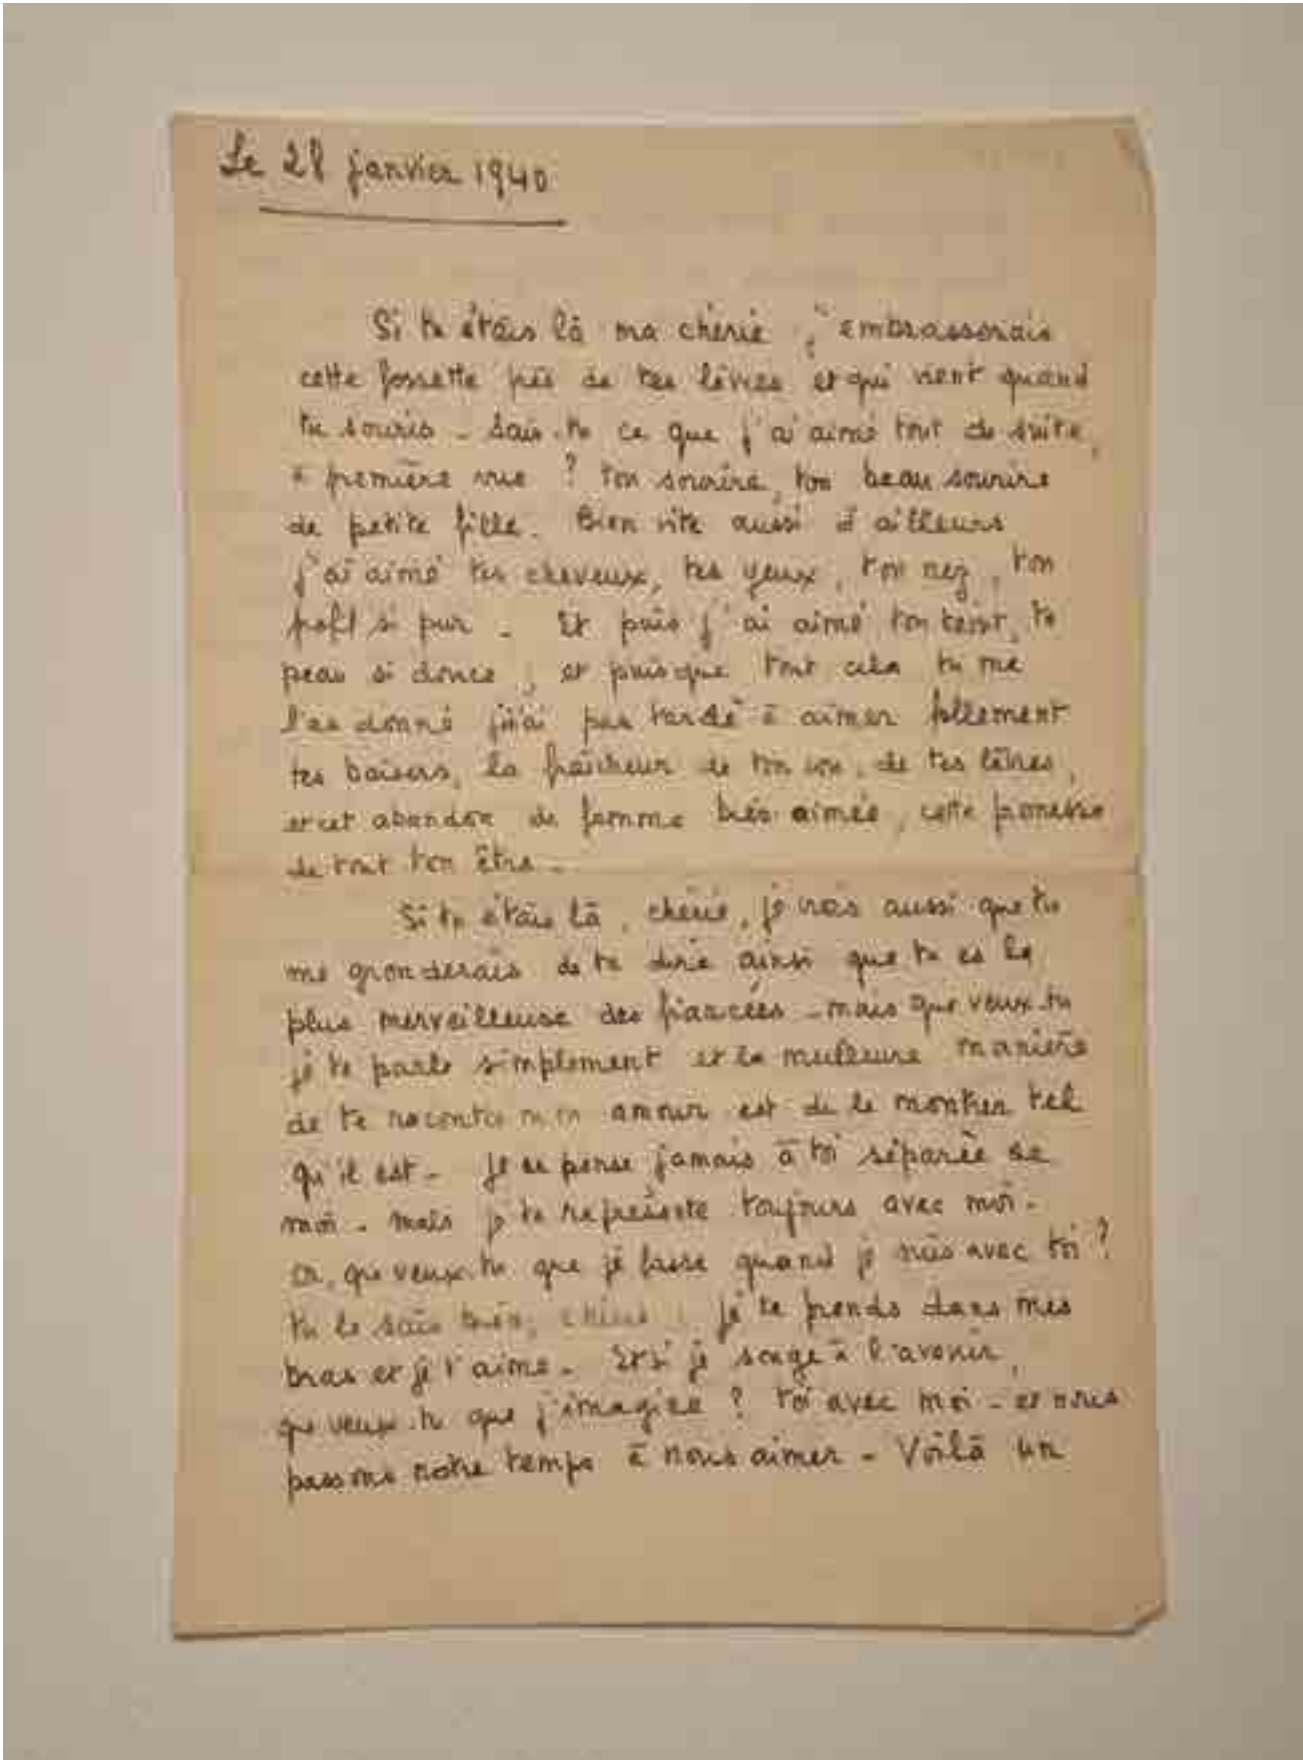 Le 28 janvier 1940
Si tu étais là ma chérie j'embrasserais
cette fossette près de tes lèvres et qui vient quand
tu souris - Sais-tu ce que j'ai aimé tout de suite,
à première vue ? ton sourire, ton beau sourire
de petite fille. Bien vite aussi d'ailleurs
j'ai aimé tes cheveux, tes yeux, ton nez, ton
profil si pur - Et puis j'ai aimé ton teint, ta
peau si douce, et puisque tout cela tu me
l'as donné j'n'ai pas tardé à aimer follement
tes baisers, la fraîcheur de ton cou, de tes lèvres,
et cet abandon de femme très aimée, cette promesse
de tout ton être -
Si tu étais là, chérie, je crois aussi que tu
me gronderais de te dire ainsi que tu es la
plus merveilleuse des fiancées - mais que veux-tu
je te parle simplement et la meilleure manière
de te raconter mon amour est de le montrer tel
qu'il est - Je ne pense jamais à toi séparée de
moi - mais je te représente toujours avec moi -
Or, que veux-tu que je fasse quand je suis avec toi ?
tu le sais bien, chérie : je te prends dans mes
bras et je t'aime - Et si je songe à l'avenir,
que veux-tu que j'imagine ? toi avec moi - et nous
passons notre temps à nous aimer - Voilà un